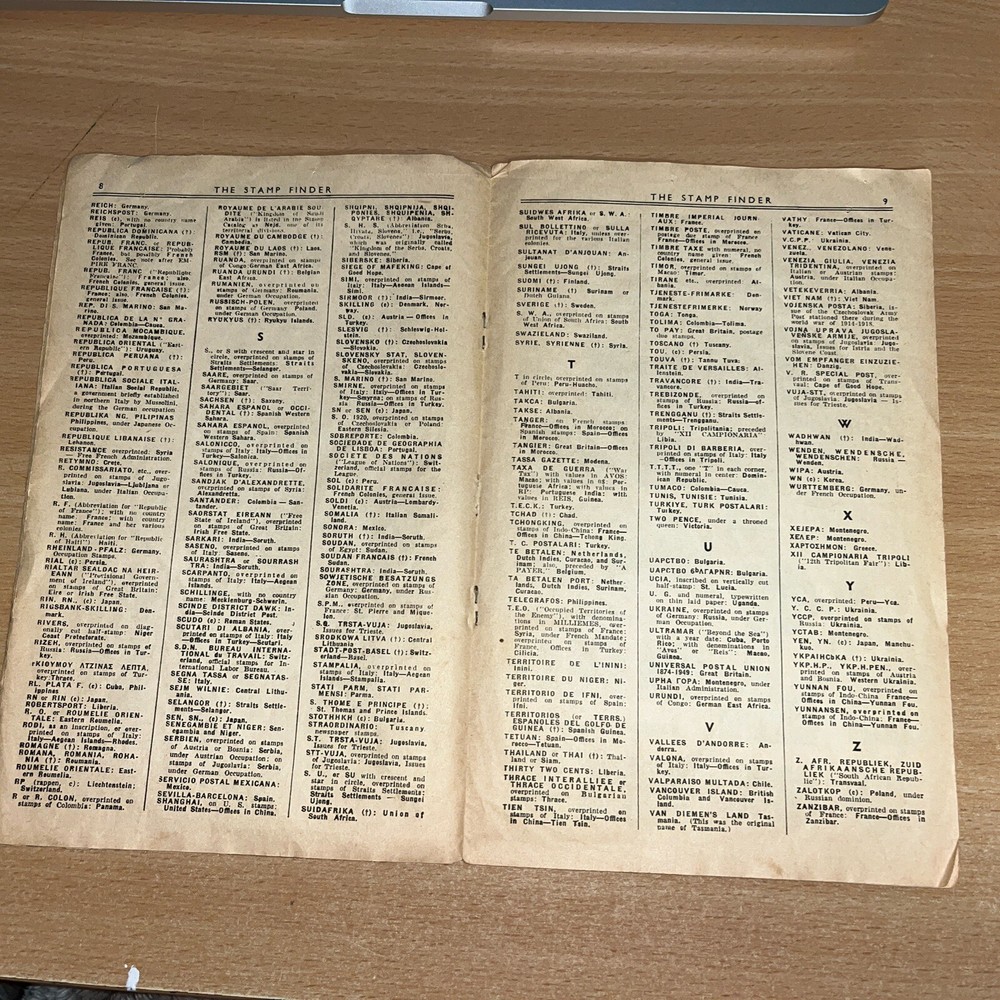 8
THE STAMP FINDER
REICH: Germany.
REICHSPOST: Germany.
REIS (c), with no country name
given: Portugal.
REPUBLICA DOMINICANA (†):
Dominican Republic.
REPUB. FRANC. or REPUB-
LIQUE FRANCAISE: Probably
France, but possibly French
Colonies.
REPUB. FRANC ("Republique
Francaise"): France; also,
French Colonies, general issue.
REPUBLIQUE FRANCAISE (†):
France; also, French Colonies,
general issue.
REP. DI S. MARINO: San Ma-
rino.
REPUBLICA DE LA Nᵃ GRA-
NADA: Colombia—Cauca.
REPUBLICA MOCAMBIQUE,
overprinted: Mozambique.
REPUBLICA ORIENTAL ("East-
ern Republic"): Uruguay.
REPUBLICA PERUANA (†):
Peru.
REPUBLICA PORTUGUESA
(†): Portugal.
REPUBLICA SOCIALE ITAL-
IANA: Italian Social Republic,
a government briefly established
in northern Italy by Mussolini,
during the German occupation
REPUBLIKA NG. PILIPINAS
Philippines, under Japanese Oc-
cupation.
REPUBLIQUE LIBANAISE (†):
Lebanon.
RESISTANCE overprinted: Syria
Free French Administration.
RETYMNO: Crete.
R. COMMISSARIATO, etc., over-
printed on stamps of Jugo-
slavia: Jugoslavia—Ljubljana or
Lubiana, under Italian Occupa-
tion.
R. F. (Abbreviation for "Republic
of France"); with no country
name: France; with country
name: France and her various
colonies.
R. H. (Abbreviation for "Republic of
Haiti"). Haiti.
RHEINLAND-PFALZ: Germany,
Occupation Stamps.
RIAL (c): Persia.
RIALTAR SEALDAC NA HEIR-
EANN ("Provisional Govern-
ment of Ireland"), overprinted
on stamps of Great Britain:
Eire or Irish Free State.
RIN, RN. (c): Japan.
RIGSBANK-SKILLING: Den-
mark.
RIVERS, overprinted on diag-
onally cut half-stamp: Niger
Coast Protectorate.
RIZEH, overprinted on stamps of
Russia: Russia—Offices in Tur-
key.
overprinted on stamps of Tur-
key: Thrace.
RL. PLATA F. (c): Cuba, Phil-
ippines
RN or RIN (c): Japan.
ROBERTSPORT: Liberia.
R. O. or ROUMELIE ORIEN-
TALE: Eastern Roumelia.
RODI, as an inscription, or over-
printed on stamps of Italy:
Italy—Aegean Islands—Rhodes.
ROMAGNE (†): Romagna.
ROMANA, ROMANA, ROMA-
NIA (†): Roumania.
ROUMELIE ORIENTALE: East-
ern Roumelia.
RP (rappen, c): Liechtenstein;
Switzerland.
R or R. COLON, overprinted on
stamps of Colombia: Panama.
ROYAUME DE L'ARABIE SOU
DITE ("Kingdom of Saudi
Arabia") is listed in the Stamp
Catalog as Nejd, one of its
territorial divisions.
ROYAUME DU CAMBODGE (†):
Cambodia.
ROYAUME DU LAOS (†): Laos.
RSM (†): San Marino.
RUANDA, overprinted on stamps
of Congo: German East Africa.
RUANDA URUNDI (†): Belgian
East Africa.
RUMANIEN, overprinted on
stamps of Germany: Roumania,
under German Occupation.
RUSSISCH-POLEN, overprinted
on stamps of Germany: Poland,
under German Occupation.
RYUKYUS (†): Ryukyu Islands.
S
S., or S with crescent and star in
circle, overprinted on stamps of
Straits Settlements: Straits
Settlements—Selangor.
SAARE, overprinted on stamps of
Germany: Saar.
SAARGEBIET ("Saar Terri-
tory"): Saar.
SACHSEN (†): Saxony.
SAHARA ESPANOL or OCCI-
DENTAL (†): Spanish Western
Sahara.
SAHARA ESPANOL, overprinted
on stamps of Spain: Spanish
Western Sahara.
SALONICCO, overprinted on
stamps of Italy: Italy—Offices in
Turkey—Salonica.
SALONIQUE, overprinted on
stamps of Russia: Russia—Of-
fices in Turkey.
SANDJAK D'ALEXANDRETTE,
overprinted on stamps of Syria:
Alexandretta.
SANTANDER: Colombia — San-
tander.
SAORSTAT EIREANN ("Free
State of Ireland"), overprinted
on stamps of Great Britain:
Irish Free State.
SARKARI: India—Soruth.
SASENO, overprinted on stamps
of Italy: Saseno.
SAURASHTRA or SOURASH
TRA: India—Soruth.
SCARPANTO, overprinted on
stamps of Italy: Italy—Aegean
Islands.
SCHILLINGE, with no country
name: Mecklenburg-Schwerin.
SCINDE DISTRICT DAWK: In-
dia—Scinde District Post.
SCUDO (c): Roman States.
SCUTARI DI ALBANIA, over-
printed on stamps of Italy: Italy
—Offices in Turkey—Scutari
S.D.N. BUREAU INTERNA-
TIONAL du TRAVAIL: Switz-
erland, official stamps for In-
ternational Labor Bureau.
SEGNA TASSA or SEGNATAS-
SE: Italy.
SEJM WILNIE: Central Lithu-
ania.
SELANGOR (†): Straits Settle-
ments—Selangor.
SEN, SN., (c): Japan.
SENEGAMBIE ET NIGER: Sen-
egambia and Niger.
SERBIEN, overprinted on stamps
of Austria or Bosnia: Serbia,
under Austrian Occupation; on
stamps of Jugoslavia: Serbia,
under German Occupation.
SERVICIO POSTAL MEXICANO:
Mexico.
SEVILLA-BARCELONA: Spain.
SHANGHAI, on U. S. stamps:
United States—Offices in China.
SHQIPNI, SHQIPNIJA, SHQI-
PONIES, SHQUIPENIA, SH-
QYPTARE (†): Albania.
S. H. S. (Abbreviation Srba,
Hrvata, Slovena"), i.e., "Serbs,
Croats, Slovenes"): Jugoslavia
which was originally called
"Kingdom of the Serbs, Croats,
and Slovenes".
SIBERSKE: Siberia.
SIEGE OF MAFEKING: Cape of
Good Hope.
SIMI, overprinted on stamps of
Italy: Italy—Aegean Islands—
Simi.
SIRMOOR (†): India—Sirmoor.
SKILLING (c): Denmark, Nor-
way.
SLD. (c): Austria — Offices in
Turkey.
SLESVIG (†): Schleswig-Hol-
stein.
SLOVENSKO (†): Czechoslovakia
—Slovakia.
SLOVENSKY STAT, SLOVEN-
SKENO, overprinted on stamps
of Czechoslovakia: Czechoslo-
vakia—Slovakia.
S. MARINO (†): San Marino.
SMIRNE, overprinted on stamps
of Italy: Italy—Offices in Tur-
key—Smyrna; on stamps of Rus-
sia: Russia—Offices in Turkey.
SN or SEN (c): Japan.
S. O. 1920, overprinted on stamps
of Czechoslovakia or Poland:
Eastern Silesia.
SOBREPORTE: Colombia.
SOCIEDADE DE GEOGRAPHIA
DE LISBOA: Portugal.
SOCIETE DES NATIONS
("League of Nations"): Swit-
zerland, official stamps for the
League.
SOL (c): Peru.
SOLIDARITE FRANCAISE:
French Colonies, general issue.
SOLDI (c): Austria—Lombardy-
Venetia.
SOMALIA (†): Italian Somali-
land.
SONORA: Mexico.
SORUTH (†): India—Soruth.
SOUDAN, overprinted on stamps
of Egypt: Sudan.
SOUDAN FRANCAIS (†): French
Sudan.
SOURASHTRA (†): India—Soruth.
SOWJETISCHE BESATZUNGS
ZONE, overprinted on stamps of
Germany: Germany, under Rus-
sian Occupation.
S.P.M., overprinted on stamps of
France: St. Pierre and Mique-
lon.
S.Q. TRSTA-VUJA: Jugoslavia,
Issues for Trieste.
SRODKOWA LITVA (†): Central
Lithuania
STADT-POST-BASEL (†): Switz-
erland—Basel.
STAMPALIA, overprinted on
stamps of Italy: Italy—Aegean
Islands—Stampalia.
STATI PARM, STATI PAR-
MENSI: Parma.
S. THOME E PRINCIPE (†):
St. Thomas and Prince Islands.
STOTHHKH (c): Bulgaria.
STRAORDINARIO: Tuscany
newspaper stamps.
S.T. TRSTA-VUJA: Jugoslavia,
Issues for Trieste.
STT-VUJA, overprinted on stamps
of Jugoslavia: Jugoslavia, Issues
for Trieste.
S. U., or SU with crescent and
star in circle, overprinted on
stamps of Straits Settlements:
Straits Settlements — Sungei
Ujong.
SUIDAFRIKA (†): Union of
South Africa.
THE STAMP FINDER
9
SUIDWES AFRIKA or S. W. A.:
South West Africa.
SUL BOLLETTINO or SULLA
RICEVUTA: Italy, unless over-
printed for the various Italian
colonies.
SULTANAT D'ANJOUAN: An-
jouan.
SUNGEI UJONG (†): Straits
Settlements—Sungei Ujong.
SUOMI (†): Finland.
SURINAME (†): Surinam or
Dutch Guiana.
SVERIGE (†): Sweden.
S. W. A., overprinted on stamps
of Union of South Africa: South
West Africa.
SWAZIELAND: Swaziland.
SYRIE, SYRIENNE (†): Syria.
T
T in circle; overprinted on stamps
of Peru: Peru—Huacho.
TAHITI: overprinted: Tahiti.
TAKCA: Bulgaria.
TAKSE: Albania.
TANGER: on French stamps:
France—Offices in Morocco; on
Spanish stamps: Spain—Offices
in Morocco.
TANGIER: Great Britain—Offices
in Morocco.
TASSA GAZETTE: Modena.
TAXA DE GUERRA ("War
Tax") with values in AVOS:
Macao; with values in 0$: Por-
tuguese Africa; with values in
RP: Portuguese India; with
values in REIS, Guinea.
T.E.C.K.: Turkey.
TCHAD (†): Chad.
TCHONGKING, overprinted on
stamps of Indo-China: France—
Offices in China—Tchong King.
T. C. POSTALARI: Turkey.
TE BETALEN: Netherlands,
Dutch Indies, Curacao, and Sur-
inam; also, preceded by "A
PAYER," Belgium.
TA BETALEN PORT: Nether-
lands, Dutch Indies, Surinam,
Curacao.
TELEGRAFOS: Philippines.
T.E.O. ("Occupied Territories of
the Enemy"), with denomina-
tions in MILLIEMES, over-
printed on stamps of France:
Syria, under French Mandate;
overprinted on stamps of
France, Offices in Turkey:
Cilicia.
TERRITOIRE DE L'ININI:
Inini.
TERRITOIRE DU NIGER: Ni-
ger.
TERRITORIO DE IFNI, over-
printed on stamps of Spain:
Ifni.
TERRITORIOS (or TERRS.)
ESPANOLES DEL GOLFO DE
GUINEA (†): Spanish Guinea.
TETUAN: Spain—Offices in Mo-
rocco—Tetuan.
THAILAND or THAI (†): Thai-
land or Siam.
THIRTY TWO CENTS: Liberia.
THRACE INTERALLIEE or
THRACE OCCIDENTALE,
overprinted on Bulgarian
stamps: Thrace.
TIEN TSIN, overprinted on
stamps of Italy: Italy—Offices
in China—Tien Tsin.
TIMBRE IMPERIAL JOURN-
AUX: France.
TIMBRE POSTE, overprinted on
postage due stamps of France:
France—Offices in Morocco.
TIMBRE TAXE with numeral, no
country name given: French
Colonies, general issue.
TIMOR, overprinted on stamps of
Macao: Timor.
TIRANE etc., overprinted: Al-
bania.
TJENESTE-FRIMARKE: Den-
mark.
TJENESTEFRIMERKE: Norway
TOGA: Tonga.
TOLIMA: Colombia—Tolima.
TO PAY: Great Britain, postage
due stamps.
TOSCANO (†): Tuscany.
TOU, (c): Persia.
TOUVA (†): Tannu Tuva:
TRAITE DE VERSAILLES: Al-
lenstein.
TRAVANCORE (†): India—Tra-
vancore.
TREBIZONDE, overprinted on
stamps of Russia: Russia—Of-
fices in Turkey.
TRENGGANU (†): Straits Settle-
ments—Trengganu.
TRIPOLI: Tripolitania; preceded
by "XII CAMPIONARIA"
Libia.
TRIPOLI DI BARBERIA, over-
printed on stamps of Italy: Italy
—Offices in Tripoli.
T.T.T.T., one "T" in each corner,
with numeral in center: Domin-
ican Republic.
TUMACO: Colombia—Cauca.
TUNIS, TUNISIE: Tunisia.
TURKIYE, TURK POSTALARI:
Turkey.
TWO PENCE, under a throned
queen: Victoria.
U
UAPCTBO: Bulgaria.
UAPCTBO бЪΛГAPNЯ: Bulgaria.
UCIA, inscribed on vertically cut
half-stamp: St. Lucia.
U. G. and numeral, typewritten
on thin laid paper: Uganda.
UKRAINE, overprinted on stamps
of Germany: Russia, under Ger-
man Occupation.
ULTRAMAR ("Beyond the Sea")
with a year date: Cuba, Porto
Rico; with denominations in
"Avos" or "Reis": Macao,
Guinea.
UNIVERSAL POSTAL UNION
1874-1949: Great Britain.
UPHA ГOPA: Montenegro, under
Italian Administration.
URUNDI, overprinted on stamps
of Congo: German East Africa.
V
VALLEES D'ANDORRE: An-
dorra.
VALONA, overprinted on stamps
of Italy: Italy—Offices in Tur-
key.
VALPARAISO MULTADA: Chile.
VANCOUVER ISLAND: British
Columbia and Vancouver Is-
land.
VAN DIEMEN'S LAND Tas-
mania. (This was the original
name of Tasmania.)
VATHY: France—Offices in Tur-
key.
VATICANE: Vatican City.
V.C.P.P.: Ukraina.
VENEZ. VENEZOLANO: Vene-
zuela.
VENEZIA GIULIA, VENEZIA
TRIDENTINA, overprinted on
Italian or Austrian stamps:
Austria, under Italian Occupa-
tion.
VETEKEVERRIA: Albania.
VIET NAM (†): Viet Nam.
VOJENSKA POSTA: Siberia, is-
sue of the Czechoslovak Army
Post stationed there during the
world war of 1914-1918.
VOJNA UPRAVA JUGOSLA-
VENSKE ARMIJE, overprinted on
stamps of Jugoslavia: Jugo-
slavia, Issues for Istria and the
Slovene Coast.
VOM EMPFANGER EINZUZIE-
HEN: Danzig.
V. R. SPECIAL POST, over-
printed on stamps of Trans-
vaal: Cape of Good Hope.
VUJA-STT, overprinted on stamps
of Jugoslavia: Jugoslavia — Is-
sues for Trieste.
W
WADHWAN (†): India—Wad-
hwan.
WENDEN, WENDENSCHE,
WENDENSCHEN: Russia —
Wenden.
WIPA: Austria.
WN (c): Korea.
WURTTEMBERG: Germany, un-
der French Occupation.
X
XEJEPA: Montenegro.
XEΛEP: Montenegro.
XAPTOZHMON: Greece.
XII CAMPIONARIA TRIPOLI
("12th Tripolitan Fair"): Lib-
ia.
Y
YCA, overprinted: Peru—Yca.
Y. C. C. P.: Ukraina.
YCCP, overprinted on stamps of
Russia: Ukraina.
YCTAB: Montenegro.
YEN, YN. (c): Japan, Manchu-
kuo.
YKPAIHCbKA (†): Ukraina.
YKP.H.P., YKP.H.PEN., over-
printed on stamps of Austria
and Bosnia, Western Ukraina.
YUNNAN FOU, overprinted on
stamps of Indo-China: France—
Offices in China—Yunnan Fou.
YUNNANSEN, overprinted on
stamps of Indo-China: France
—Offices in China—Yunnan Fou.
Z
Z. AFR. REPUBLIEK, ZUID
AFRIKAANSCHE REPUB-
LIEK ("South African Repub-
lic"): Transvaal.
ZALOTKOP (c): Poland, under
Russian dominion.
ZANZIBAR, overprinted on stamps
of France: France—Offices in
Zanzibar.